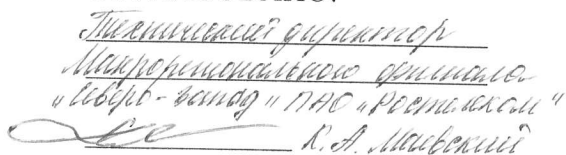 Технический директор
Макрорегионального филиала
"Северо-запад" ПАО "Ростелеком"
К.А.